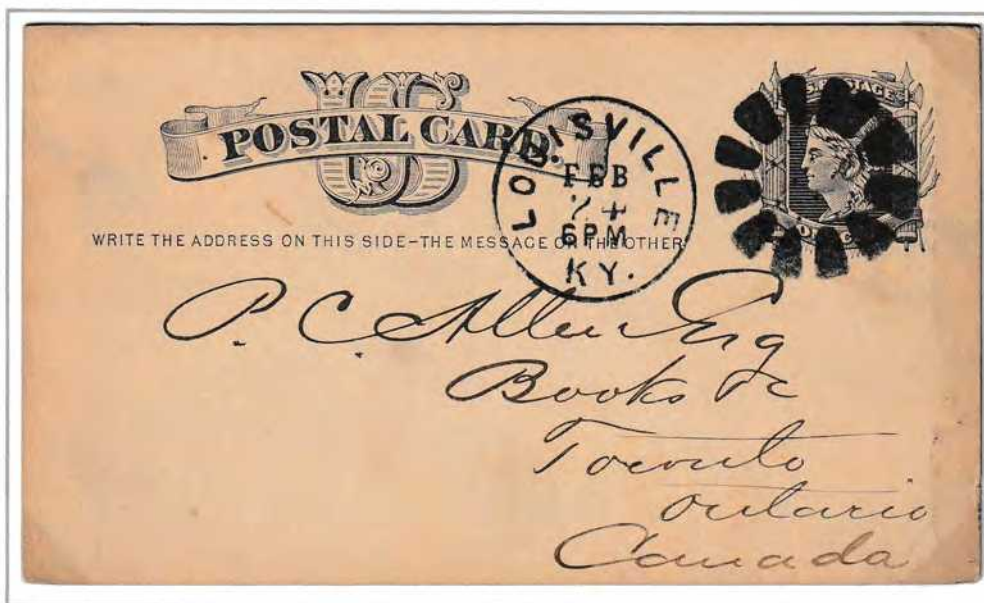 U.S. POSTAGE
US
POSTAL CARD.
LOUISVILLE
FEB
24
6PM
KY.
WRITE THE ADDRESS ON THIS SIDE-THE MESSAGE ON THE OTHER
P. C. Allen Esq
Books &c
Toronto
Ontario
Canada